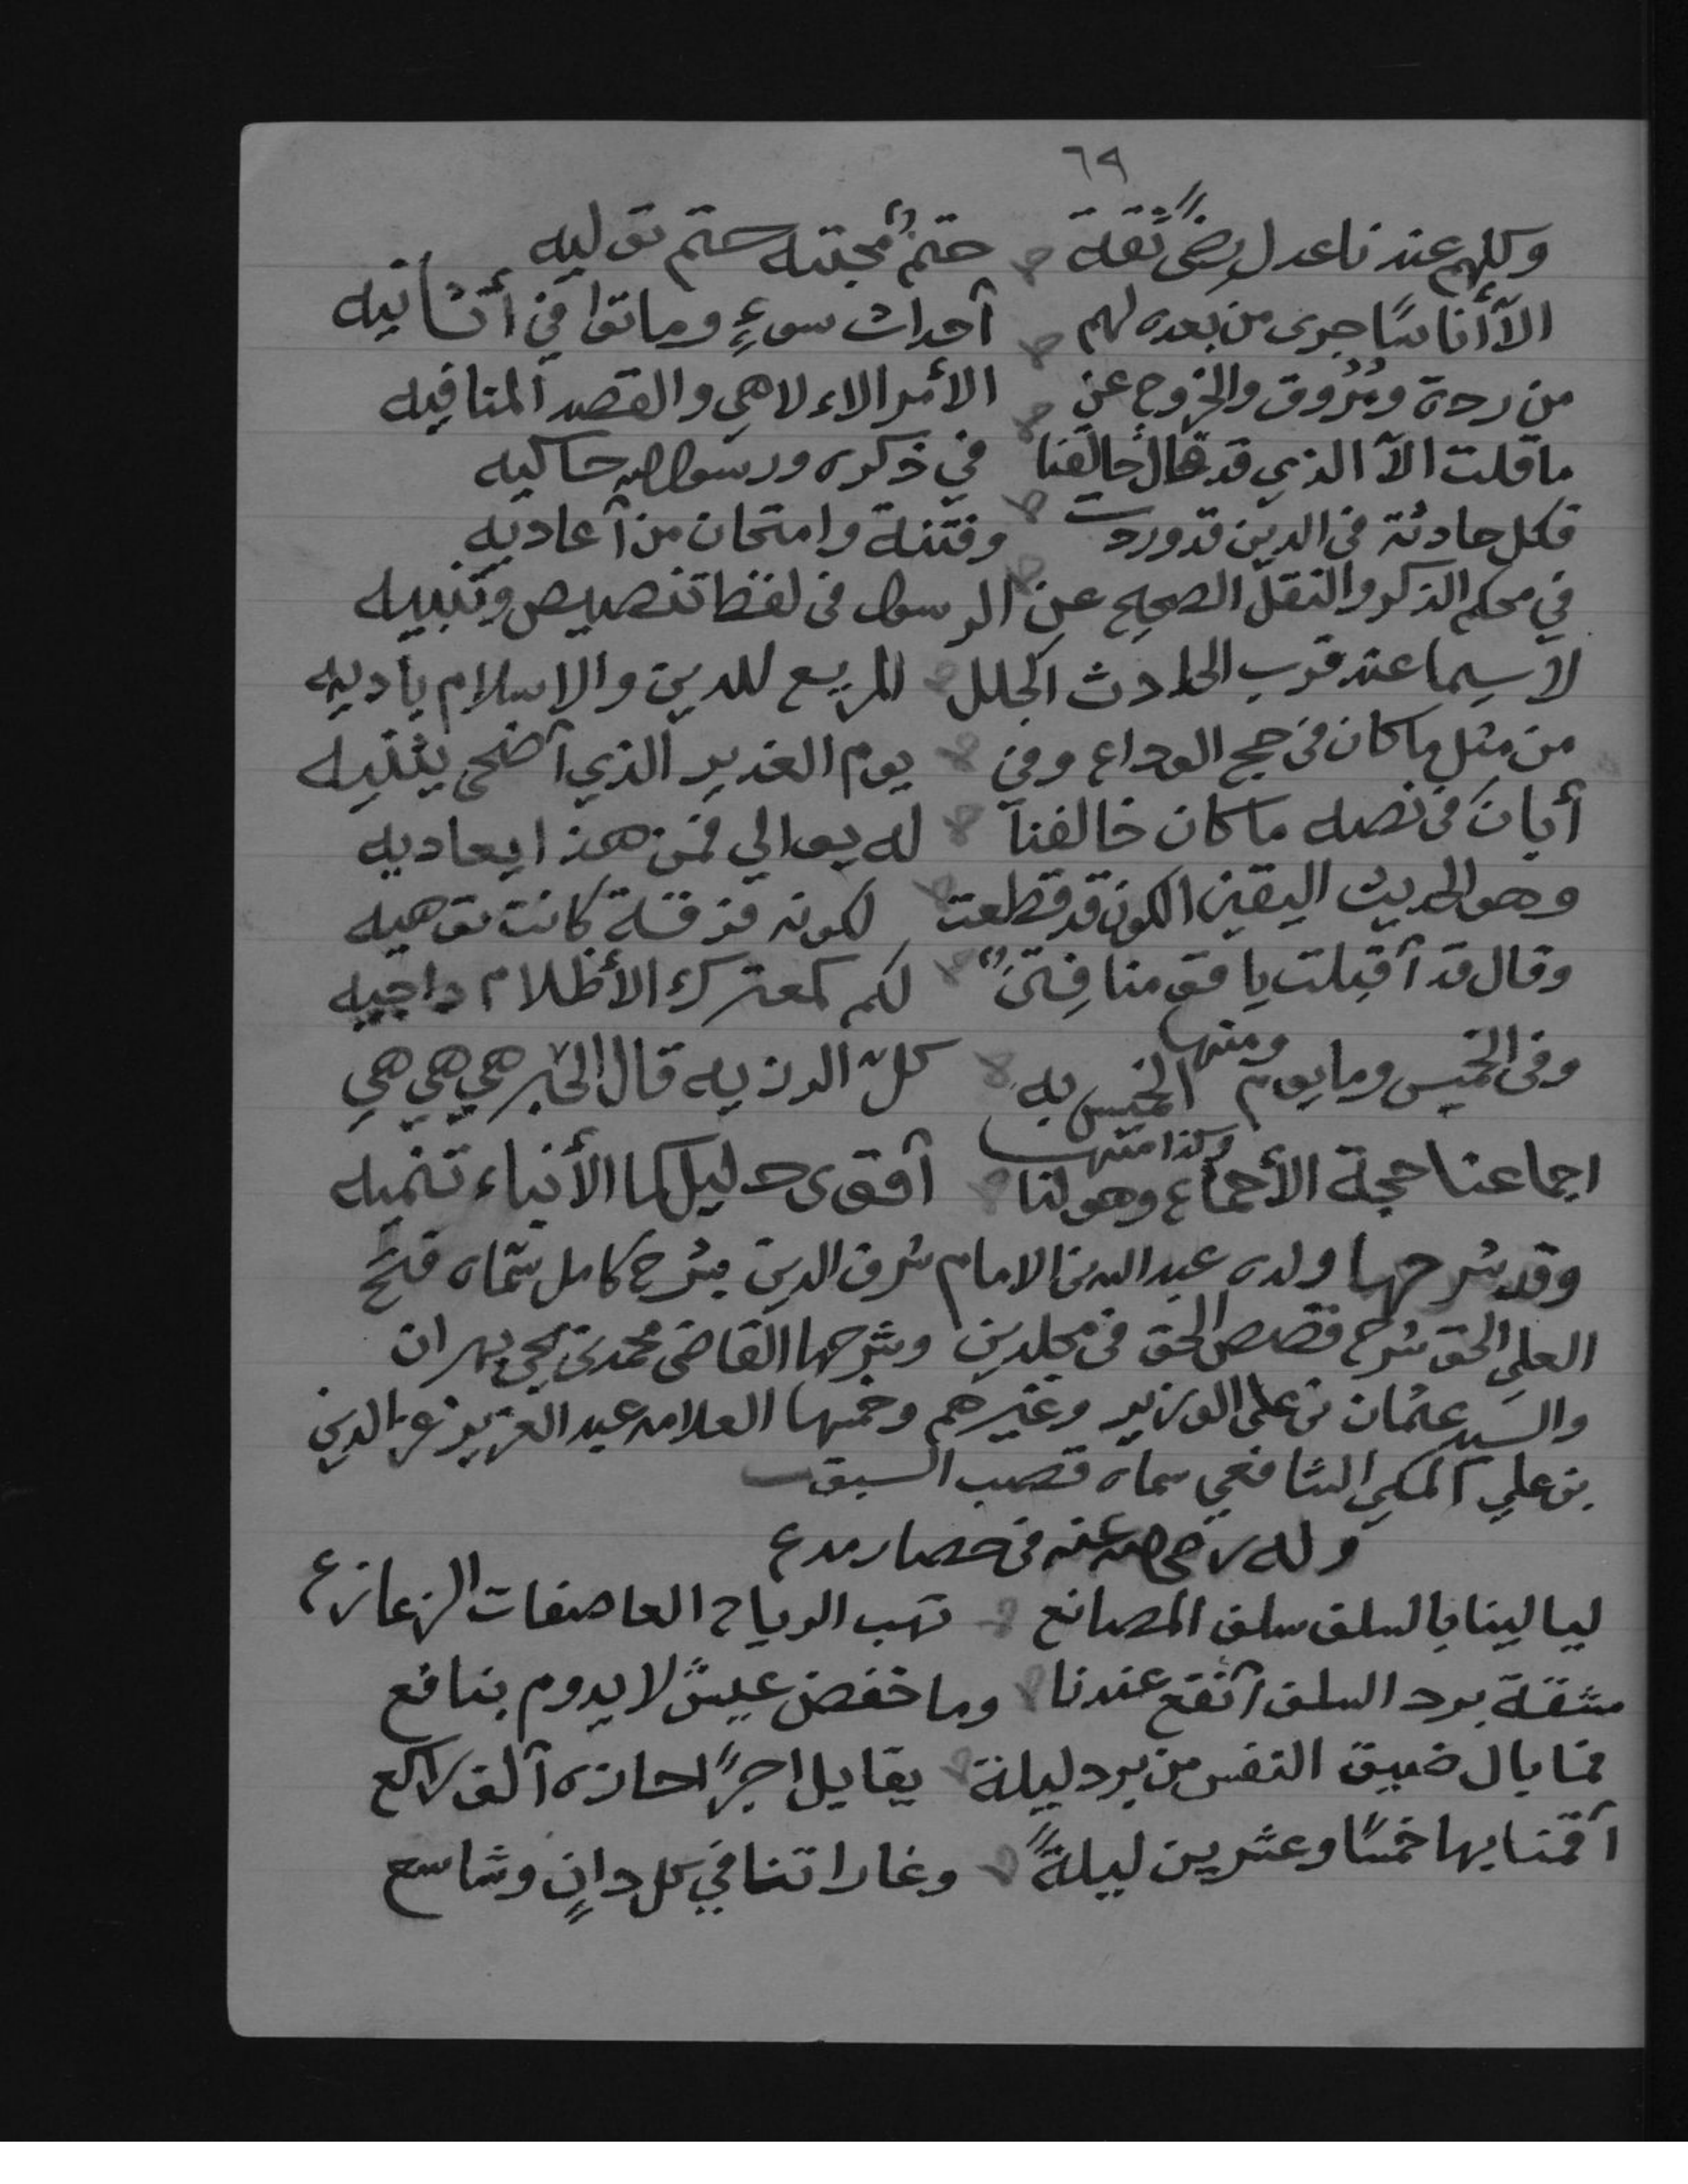 ٦٩
وكلهم عندنا عدل رضىً ثقة حتمٌ محبته حتم توليه
الآ أناسًا جرى من بعده لهم أحداث سوءٍ وماتوا في أثانيه
من ردة ومُرُوق والخروج عن الأمر الالاهي والقصد المنافيه
ما قلت الآ الذي قد قال خالقنا في ذكره ورسول الله حاكيه
فكل حادثة في الدين قد وردت وفتنة وامتحان من أعاديه
في محكم الذكر والنقل الصحيح عن الرسول في لفظ تنصيص وتنبيه
لاسيما عند قرب الحادث الجلل المريع للدين والاسلام ياديه
من مثل ما كان في حج الوداع وفي يوم الغدير الذي أضحى يثنيه
أبان في نصه ما كان خالفنا له يوالي فمن هذا يعاديه
وهو الحديث اليقين الكون قد قطعت لكونه فرقة كانت توهيه
وقال قد أقبلت يا قومنا فِتنٌ لكم كمعترك الأظلام داجيه
وفي الخميس وما يوم الخميس به ومنها كلّ الرزيه قال الحبر هي هي هي
اجماعنا حجة الأجماع وهو لنا وكذا منها أقوى دليل كما الأنباء تنميه
وقد شرحها ولده عبد الله بن الامام شرف الدين بشرح كامل سمّاه فتح
العلي الحق شرح قصص الحق في مجلدين وشرحها القاضي محمد بن يحي بهران
والسيد عثمان بن علي الوزير وغيرهم وخمسها العلامه عبد العزيز عز الدين
بن علي المكي الشافعي سماه قصب السبق
وله رضي الله عنه في حصار مدع
ليالينا بالسلف سلف المصانع تهب الرياح العاصفات الزعازع
مشقة برد السلف أنفع عندنا وما خفض عيشً لا يدوم بنافع
فما بال ضيق النفس من برد ليلة يقابل اجرًا حازه ألف راكع
أقمنا بها خمسًا وعشرين ليلةً وغاراتنا في كل دانٍ وشاسع